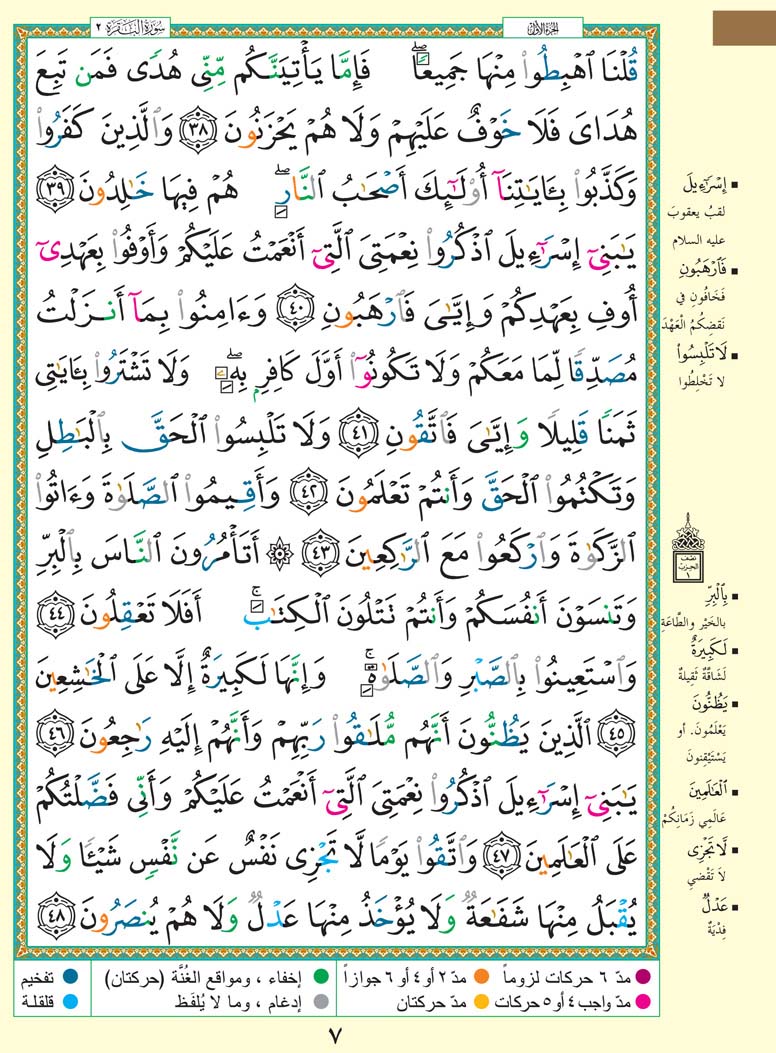 سُورَةُ البَقَرَة ٢
الجزء الأول
قُلْنَا ٱهْبِطُوا۟ مِنْهَا جَمِيعًۭا ۖ فَإِمَّا يَأْتِيَنَّكُم مِّنِّى هُدًۭى فَمَن تَبِعَ
هُدَاىَ فَلَا خَوْفٌ عَلَيْهِمْ وَلَا هُمْ يَحْزَنُونَ ٣٨ وَٱلَّذِينَ كَفَرُوا۟
وَكَذَّبُوا۟ بِـَٔايَـٰتِنَآ أُو۟لَـٰٓئِكَ أَصْحَـٰبُ ٱلنَّارِ ۖ هُمْ فِيهَا خَـٰلِدُونَ ٣٩
يَـٰبَنِىٓ إِسْرَٰٓءِيلَ ٱذْكُرُوا۟ نِعْمَتِىَ ٱلَّتِىٓ أَنْعَمْتُ عَلَيْكُمْ وَأَوْفُوا۟ بِعَهْدِىٓ
أُوفِ بِعَهْدِكُمْ وَإِيَّـٰىَ فَٱرْهَبُونِ ٤٠ وَءَامِنُوا۟ بِمَآ أَنزَلْتُ
مُصَدِّقًۭا لِّمَا مَعَكُمْ وَلَا تَكُونُوٓا۟ أَوَّلَ كَافِرٍۭ بِهِۦ ۖ وَلَا تَشْتَرُوا۟ بِـَٔايَـٰتِى
ثَمَنًۭا قَلِيلًۭا وَإِيَّـٰىَ فَٱتَّقُونِ ٤١ وَلَا تَلْبِسُوا۟ ٱلْحَقَّ بِٱلْبَـٰطِلِ
وَتَكْتُمُوا۟ ٱلْحَقَّ وَأَنتُمْ تَعْلَمُونَ ٤٢ وَأَقِيمُوا۟ ٱلصَّلَوٰةَ وَءَاتُوا۟
ٱلزَّكَوٰةَ وَٱرْكَعُوا۟ مَعَ ٱلرَّٰكِعِينَ ٤٣ ۞ أَتَأْمُرُونَ ٱلنَّاسَ بِٱلْبِرِّ
وَتَنسَوْنَ أَنفُسَكُمْ وَأَنتُمْ تَتْلُونَ ٱلْكِتَـٰبَ ۚ أَفَلَا تَعْقِلُونَ ٤٤
وَٱسْتَعِينُوا۟ بِٱلصَّبْرِ وَٱلصَّلَوٰةِ ۚ وَإِنَّهَا لَكَبِيرَةٌ إِلَّا عَلَى ٱلْخَـٰشِعِينَ
٤٥ ٱلَّذِينَ يَظُنُّونَ أَنَّهُم مُّلَـٰقُوا۟ رَبِّهِمْ وَأَنَّهُمْ إِلَيْهِ رَٰجِعُونَ ٤٦
يَـٰبَنِىٓ إِسْرَٰٓءِيلَ ٱذْكُرُوا۟ نِعْمَتِىَ ٱلَّتِىٓ أَنْعَمْتُ عَلَيْكُمْ وَأَنِّى فَضَّلْتُكُمْ
عَلَى ٱلْعَـٰلَمِينَ ٤٧ وَٱتَّقُوا۟ يَوْمًۭا لَّا تَجْزِى نَفْسٌ عَن نَّفْسٍۢ شَيْـًۭٔا وَلَا
يُقْبَلُ مِنْهَا شَفَـٰعَةٌۭ وَلَا يُؤْخَذُ مِنْهَا عَدْلٌۭ وَلَا هُمْ يُنصَرُونَ ٤٨
إِسْرَٰٓءِيلَ
لقبُ يعقوبَ
عليه السلام
فَٱرْهَبُونِ
فَخَافُونِ في
نَقضِكُمُ العَهْدَ
لَا تَلْبِسُوا۟
لا تَخْلِطُوا
نصف
الحزب
١
بِٱلْبِرِّ
بالخَيْرِ والطَّاعَةِ
لَكَبِيرَةٌ
لَشَاقَّةٌ ثَقِيلَةٌ
يَظُنُّونَ
يَعْلَمُونَ. أو
يَسْتَيْقِنونَ
ٱلْعَـٰلَمِينَ
عَالَمِي زَمَانِكُمْ
لَّا تَجْزِى
لا تَقْضِي
عَدْلٌۭ
فِدْيَةٌ
مدّ ٦ حركات لزوماً
مدّ ٢ أو ٤ أو ٦ جوازاً
إخفاء ، ومواقع الغُنَّة (حركتان)
تفخيم
مدّ واجب ٤ أو ٥ حركات
مدّ حركتان
إدغام ، وما لا يُلفَظ
قلقلة
٧